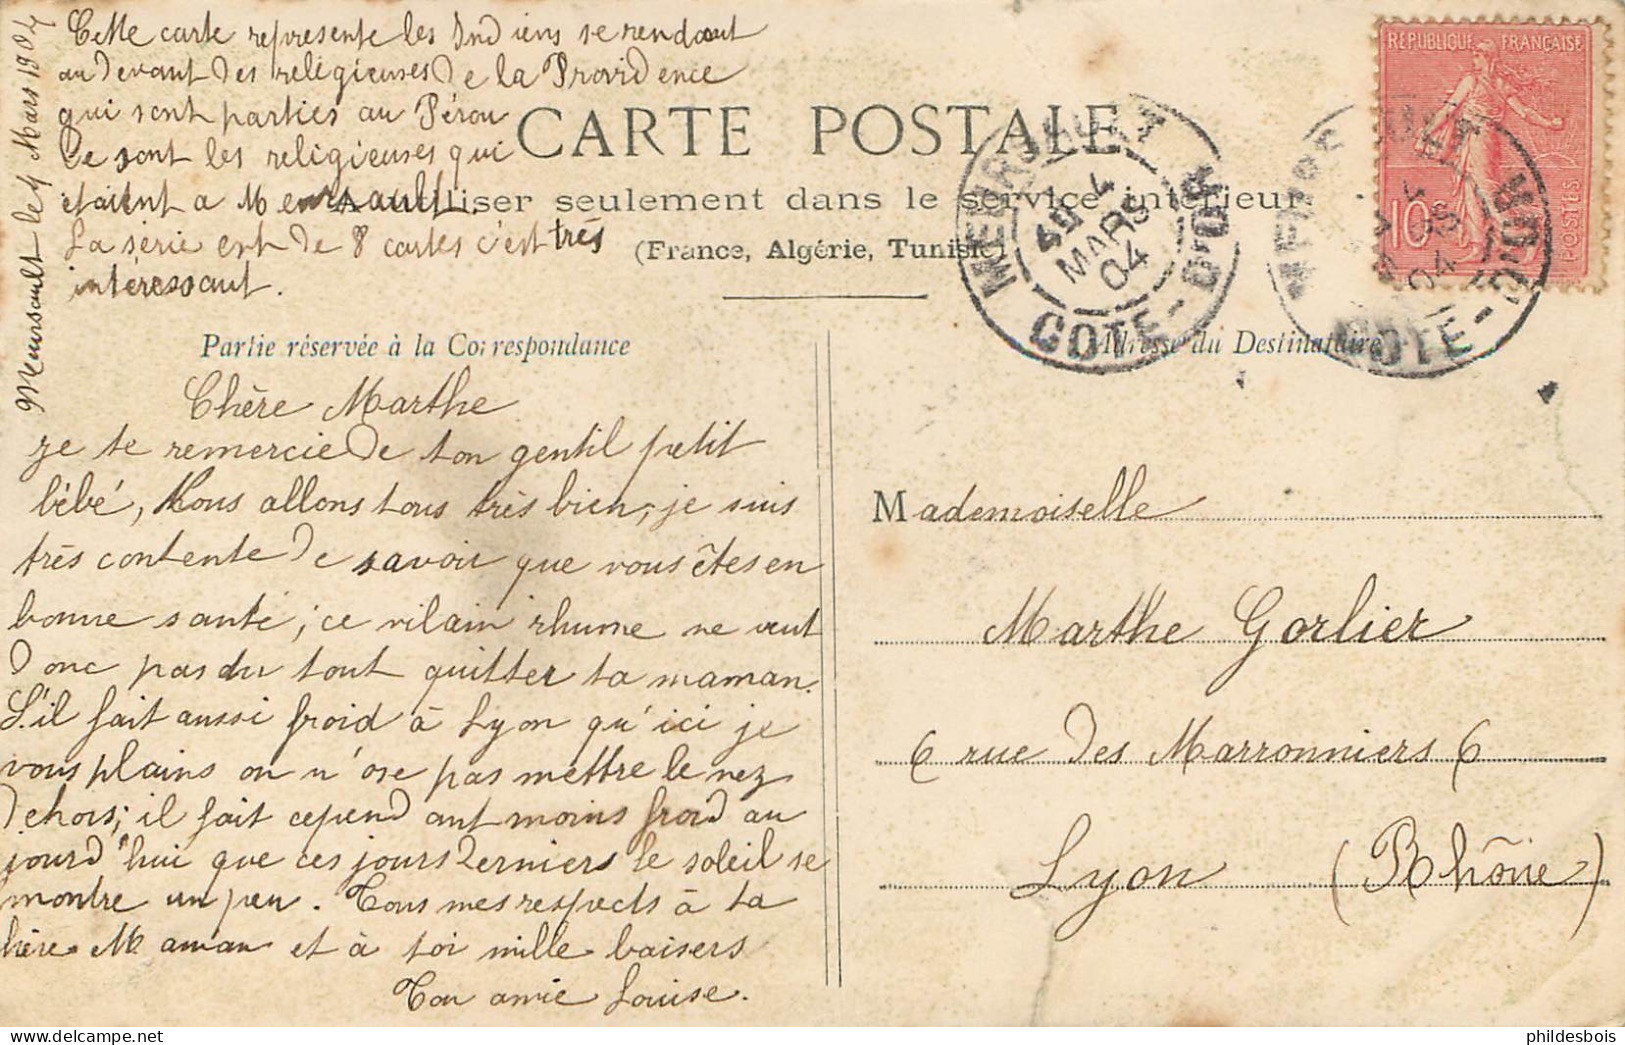 Meursault le 4 Mars 1904
Cette carte represente les Indiens se rendant
au devant des religieuses de la Providence
qui sont parties au Pérou
Ce sont les religieuses qui
étaient a Meursault.
La serie est de 8 cartes c'est très
intéressant.
CARTE POSTALE
A utiliser seulement dans le service intérieur
(France, Algérie, Tunisie)
RÉPUBLIQUE FRANÇAISE
10c
POSTES
MEURSAULT
4
MARS
04
COTE-D'OR
Partie réservée à la Correspondance
Adresse du Destinataire
Chère Marthe
je te remercie de ton gentil petit
bébé, Nous allons tous très bien, je suis
très contente de savoir que vous êtes en
bonne santé; ce vilain rhume ne veut
donc pas du tout quitter ta maman.
S'il fait aussi froid à Lyon qu'ici je
vous plains on n'ose pas mettre le nez
dehors; il fait cependant moins froid au
jourd'hui que ces jours derniers le soleil se
montre un peu. Tous mes respects à ta
chère Maman et à toi mille baisers
Ton amie Louise.
Mademoiselle
Marthe Gorlier
6 rue des Marronniers 6
Lyon (Rhône)
phildesbois